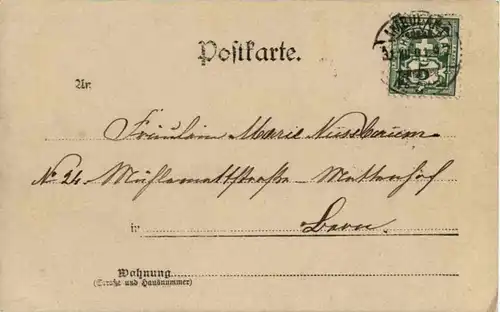 Postkarte.
An
Fräulein Marie Nussbaum
No 24. Mühlemattstrasse - Mattenhof
in Bern.
Wohnung
(Straße und Hausnummer)